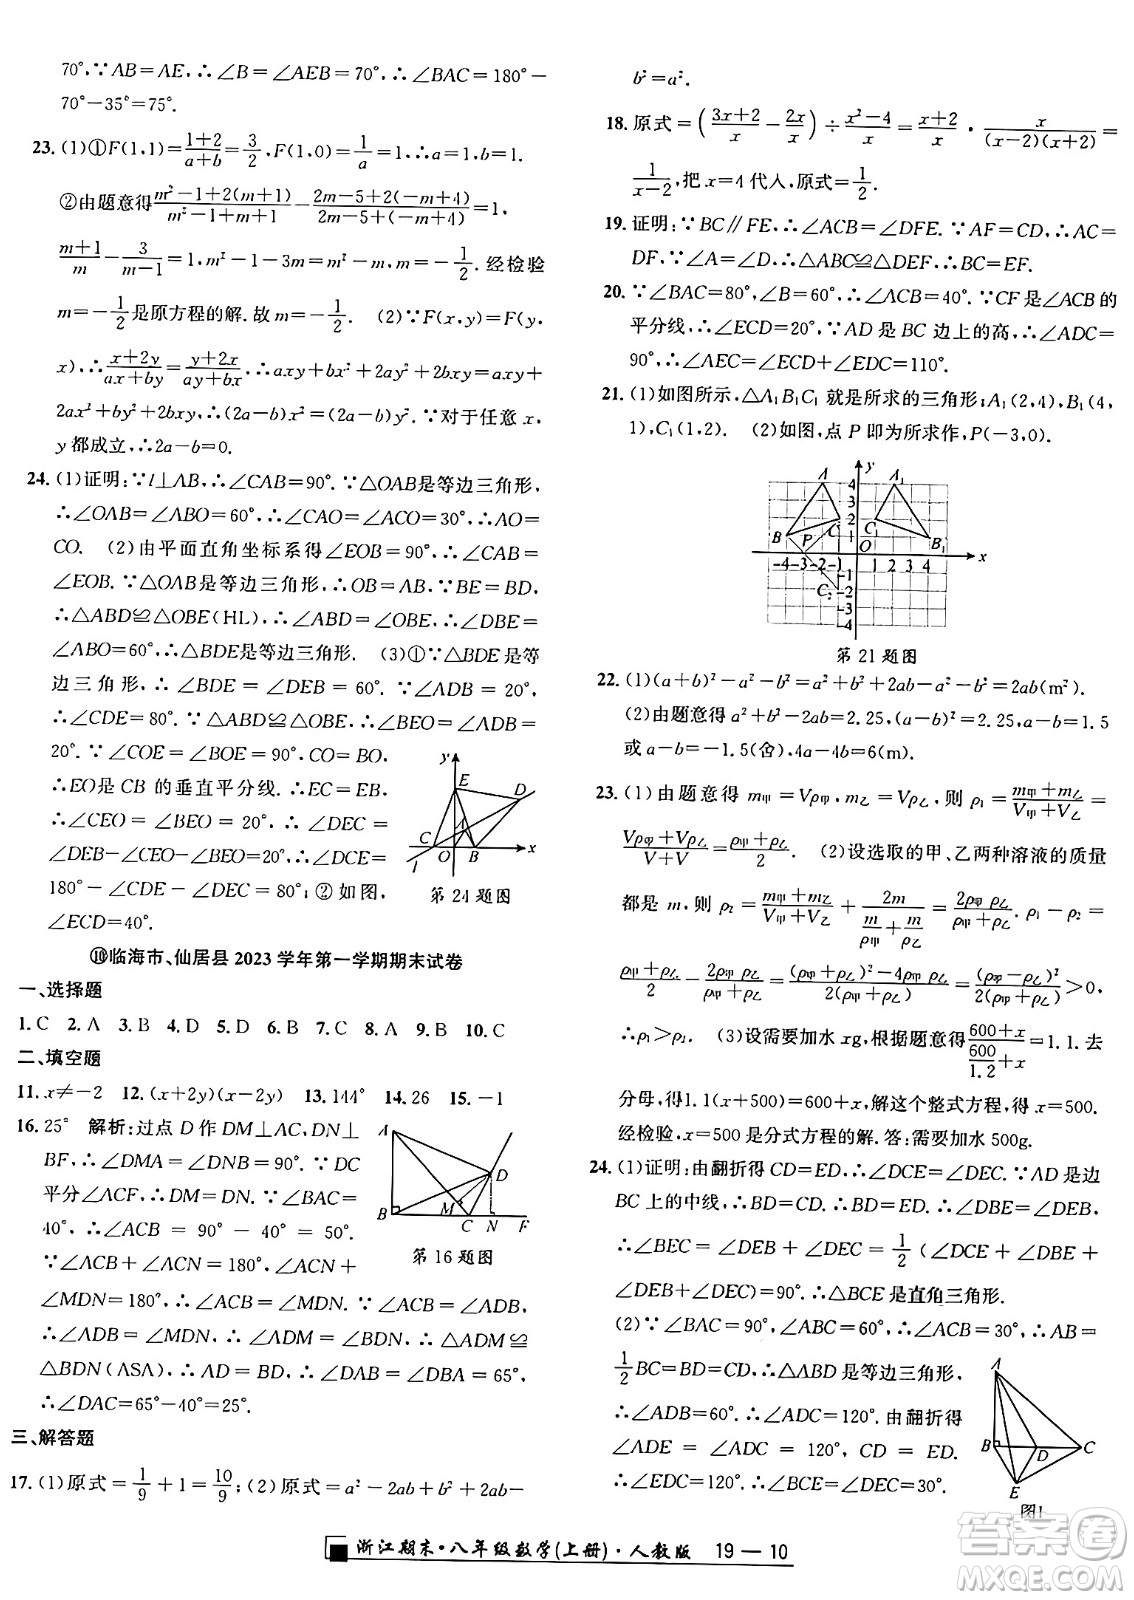 70°,∵AB=AE,∴∠B=∠AEB=70°,∴∠BAC=180°-
70°-35°=75°.
23. (1)①F(1,1)=(1+2)/(a+b)=3/2,F(1,0)=1/a=1,∴a=1,b=1.
②由题意得(m²-1+2(m+1))/(m²-1+m+1)-(2m-5+(m+4)·2)/(2m-5+(m+4))=1,
(m+1)/m-3/(m-1)=1,m²-1-3m=m²-m,m=-1/2.经检验
m=-1/2是原方程的解.故m=-1/2. (2)∵F(x,y)=F(y,
x),∴(x+2y)/(ax+by)=(y+2x)/(ay+bx),∴axy+bx²+2ay²+2bxy=axy+
2ax²+by²+2bxy,∴(2a-b)x²=(2a-b)y².∵对于任意x,
y都成立,∴2a-b=0.
24. (1)证明:∵l⊥AB,∴∠CAB=90°.∵△OAB是等边三角形,
∴∠OAB=∠ABO=60°,∴∠CAO=∠ACO=30°,∴AO=
CO. (2)由平面直角坐标系得∠EOB=90°,∴∠DAB=
∠EOB.∵△OAB是等边三角形,∴OB=AB.∵BD=BE,
∴△ABD≌△OBE(HL),∴∠ABD=∠OBE,∴∠DBE=
∠ABO=60°,∴△BDE是等边三角形. (3)①∵△BDE是等
边三角形,∴∠BDE=60°.∵∠ADB=20°,
∴∠CDE=80°.∵△ABD≌△OBE,∴∠BEO=∠ADB=
20°.∵∠COE=∠BOE=90°.CO=BO,
∴EO是CB的垂直平分线.
∴∠CEO=∠BEO=20°,∴∠DEC=
∠DEB-∠CEO-∠BEO=20°.∴∠DCE=
180°-∠CDE-∠DEC=80°;②如图,
∠ECD=40°.
y E D A C O B x l
第24题图
⑩临海市、仙居县2023学年第一学期期末试卷
一、选择题
1. C 2. A 3. B 4. D 5. D 6. B 7. C 8. A 9. B 10. C
二、填空题
11. x≠-2 12. (x+2y)(x-2y) 13. 144° 14. 26 15. -1
16. 25° 解析:过点D作DM⊥AC,DN⊥
BF,∴∠DMA=∠DNB=90°.∵DC
平分∠ACF,∴DM=DN.∵∠BAC=
40°,∴∠ACB=90°-40°=50°.
∵∠ACB+∠ACN=180°,∠ACN+
∠MDN=180°,∴∠MDN=∠ACB=50°.∵∠ADB=50°,
∴∠ADB=∠MDN,∴∠ADM=∠BDN,∴△ADM≌
△BDN(ASA),∴AD=BD,∴∠DAB=∠DBA=65°,
∴∠DAC=65°-40°=25°.
A D M B C N F
第16题图
三、解答题
17. (1)原式=1/9+1=10/9;(2)原式=a²-2ab+b²+2ab-
b²=a².
18. 原式=((3x+2)/x-2x/x)÷(x²-4)/x=(x+2)/x·x/((x-2)(x+2))=
1/(x-2),把x=4代人,原式=1/2.
19. 证明:∵BC∥FE,∴∠ACB=∠DFE.∵AF=CD,∴AC=
DF,∵∠A=∠D,∴△ABC≌△DEF,∴BC=EF.
20. ∵∠BAC=80°,∠B=60°,∴∠ACB=40°.∵CF是∠ACB的
平分线,∴∠ECD=20°,∵AD是BC边上的高,∴∠ADC=
90°,∴∠AEC=∠ECD+∠EDC=110°.
21. (1)如图所示,△A₁B₁C₁就是所求的三角形;A₁(2,4),B₁(4,
1),C₁(1,2). (2)如图,点P即为所求作,P(-3,0).
y A 4 A₁ 3 2 C C₁ B 1 B₁ P O x -4 -3 -2 -1 1 2 3 4 -1 C₂ -2 -3 -4
第21题图
22. (1)(a+b)²-a²-b²=a²+b²+2ab-a²-b²=2ab(m²).
(2)由题意得a²+b²-2ab=2.25,(a-b)²=2.25,a-b=1.5
或a-b=-1.5(舍),4a-4b=6(m).
23. (1)由题意得m甲=Vρ甲,m乙=Vρ乙,则ρ₁=(m甲+m乙)/(V甲+V乙)=
(Vρ甲+Vρ乙)/(V+V)=(ρ甲+ρ乙)/2. (2)设选取的甲、乙两种溶液的质量
都是m,则ρ₂=(m甲+m乙)/(V甲+V乙)=2m/(m/ρ甲+m/ρ乙)=2ρ甲ρ乙/(ρ甲+ρ乙).ρ₁-ρ₂=
(ρ甲+ρ乙)/2-2ρ甲ρ乙/(ρ甲+ρ乙)=(ρ甲-ρ乙)²/(2(ρ甲+ρ乙))=(ρ甲-ρ乙)²/(2(ρ甲+ρ乙))>0,
∴ρ₁>ρ₂. (3)设需要加水xg,根据题意得(600+x)/(600/1.2+x)=1.1.去
分母,得1.1(x+500)=600+x,解这个整式方程,得x=500.
经检验,x=500是分式方程的解.答:需要加水500g.
24. (1)证明:由翻折得CD=ED,∴∠DCE=∠DEC.∵AD是边
BC上的中线,∴BD=CD,∴BD=ED.∴∠DEB=∠DBE,
∴∠BEC=∠DEB+∠DEC=1/2(∠DCE+∠DBE+
∠DEB+∠DEC)=90°.∴△BCE是直角三角形.
(2)∵∠BAC=90°,∠BAC=60°,∴∠ACB=30°,∴AB=
1/2BC=BD=CD.∴△ABD是等边三角形,
∴∠ADB=60°,∴∠ADC=120°.由翻折得
∠ADE=∠ADC=120°,CD=ED.
∴∠CDE=120°.∴∠DCE=∠DEC=
A B D C E
图1
浙江期末·八年级数学(上册)·人教版 19-10
答案圈
MXQE.COM